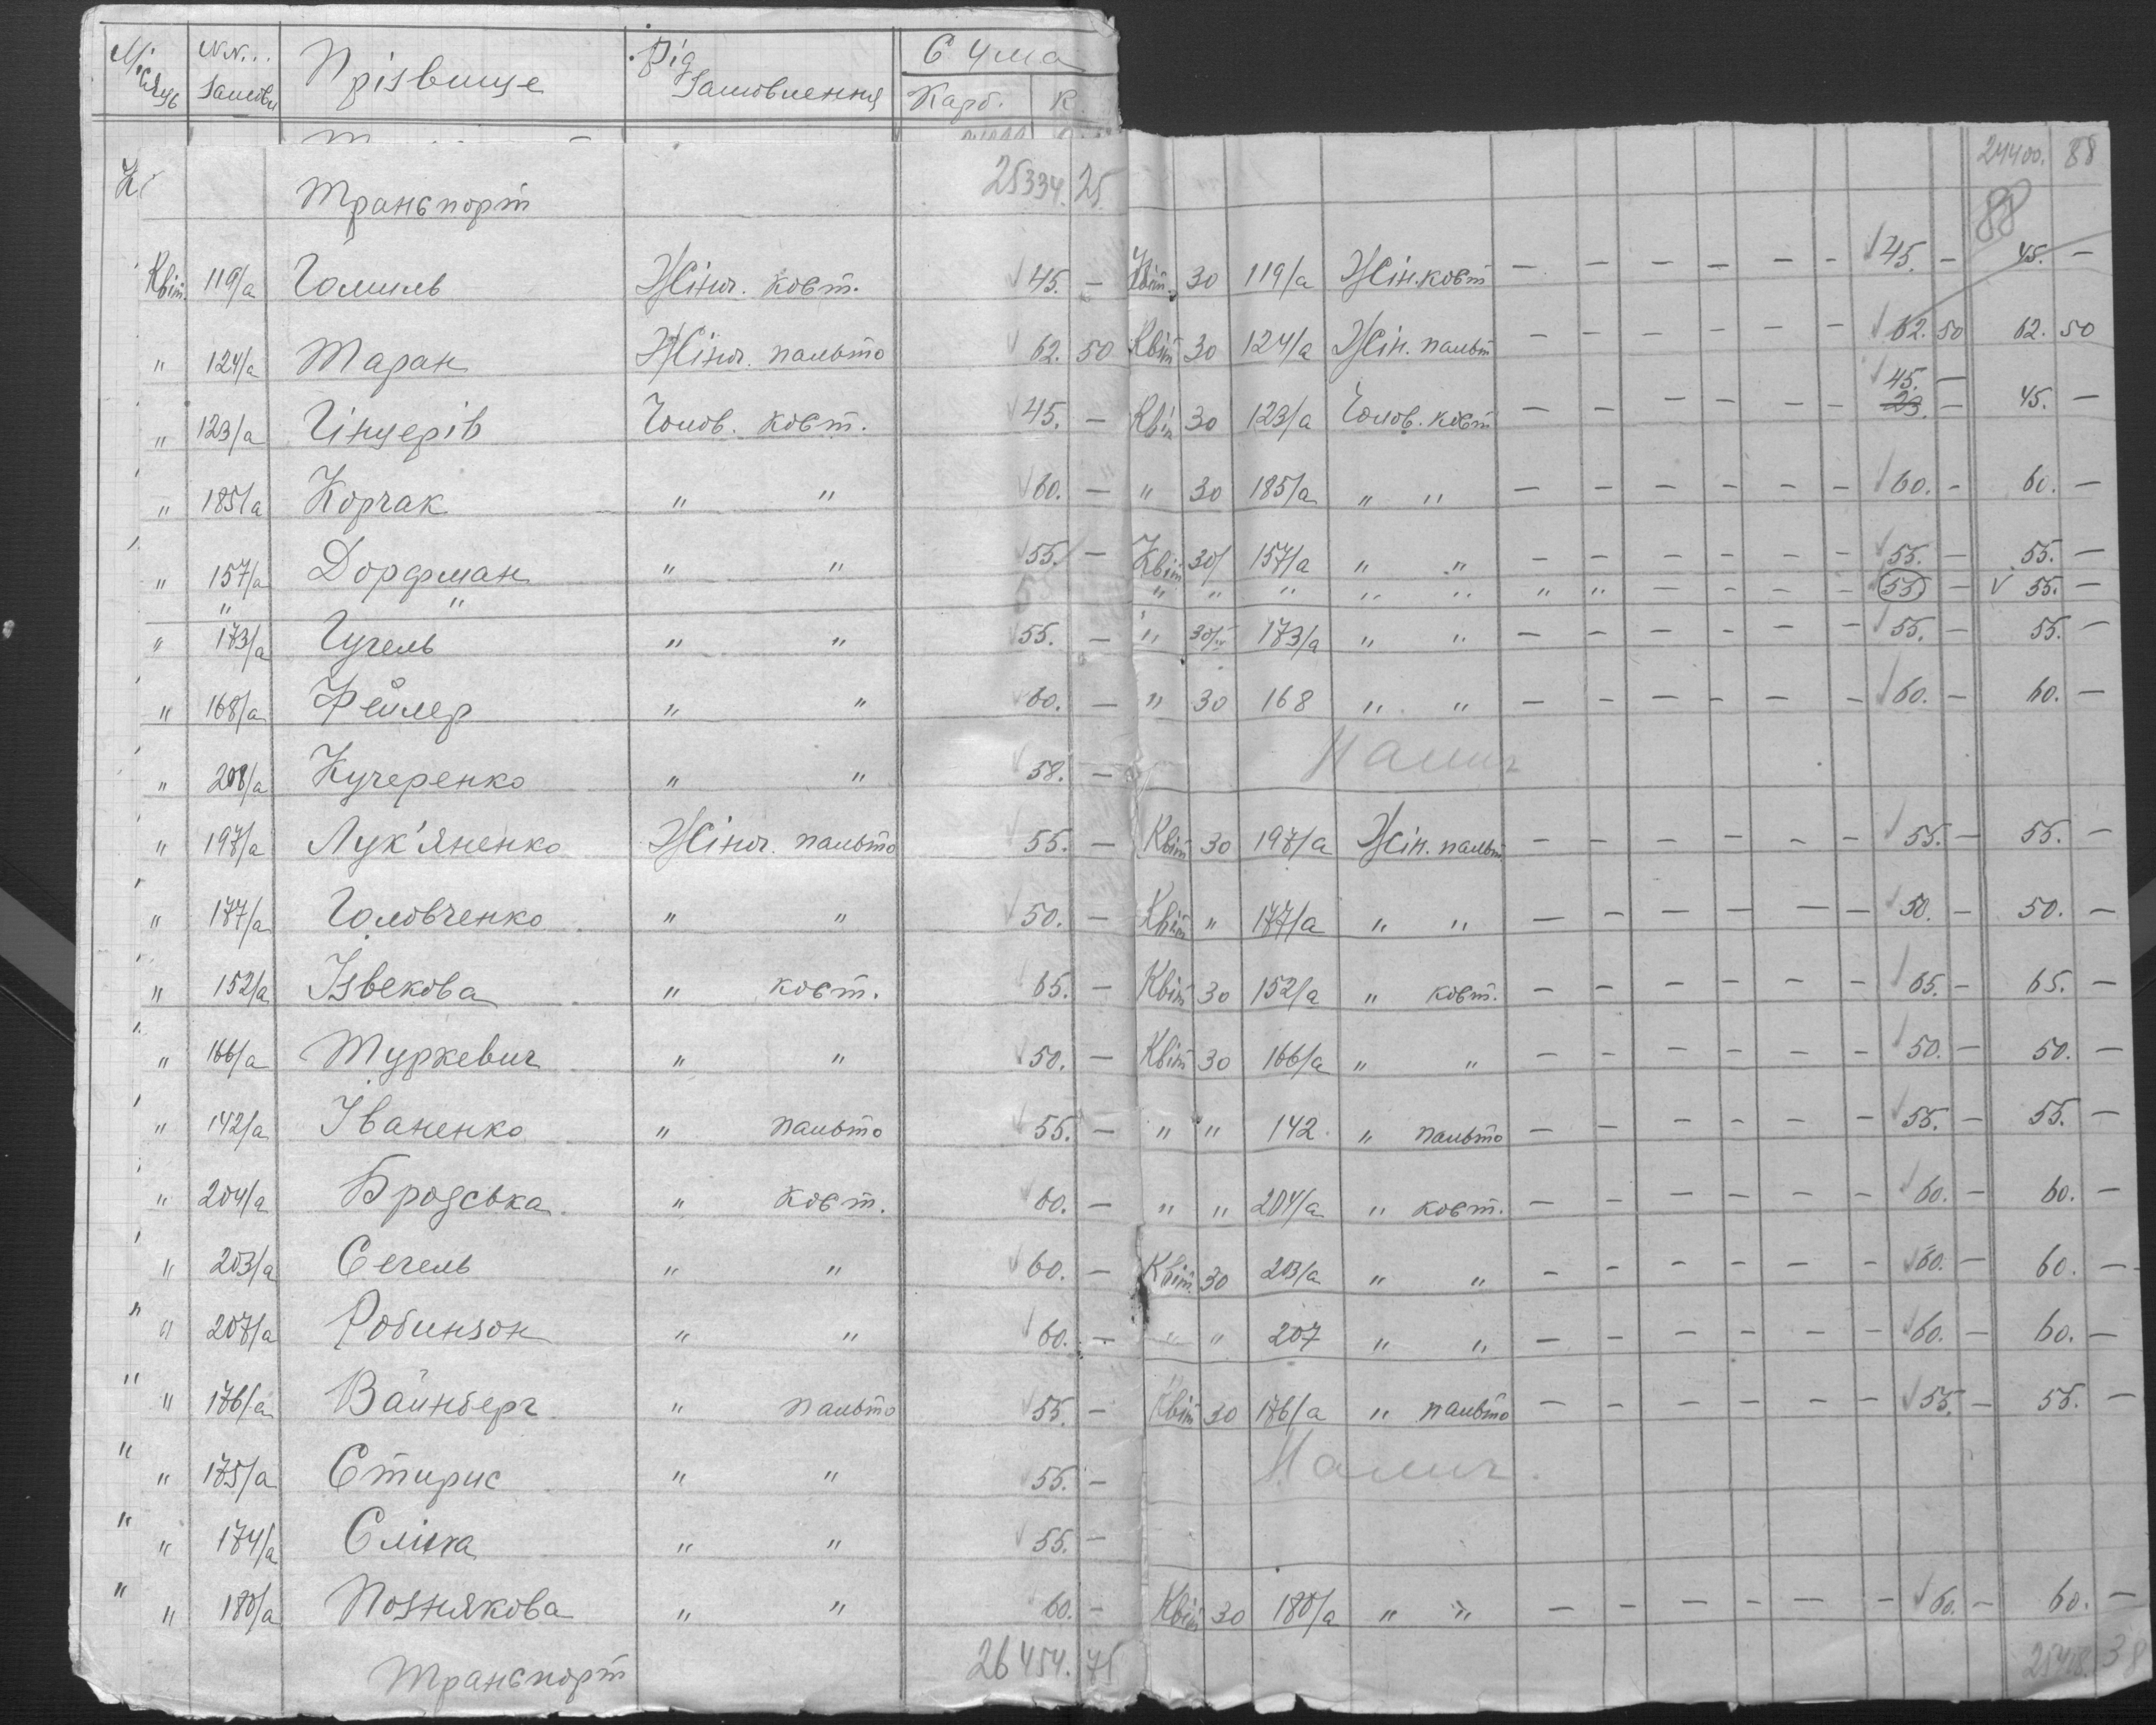 Місяць NN... Замовл Прізвище Рід Замовлення Сума
Карб. К.
Транспорт 25334. 25. 24400. 88
88
Квіт. 119/а Гомиль Жіноч. кост. 45. — Квіт. 30 119/а Жін. кост — — — — — — 45. — 45. —
" 124/а Таран Жіноч. пальто 62. 50 Квіт 30 124/а Жін. пальт — — — — — — 62. 50 62. 50
45. —
" 123/а Гінцерів Чолов. кост. 45. — Квіт 30 123/а Чолов. кост — — — — — — 23. — 45. —
" 185/а Корчак " " 60. — " 30 185/а " " — — — — — — 60. — 60. —
" 157/а Дорфман " " 55. — Квіт 30/ 157/а " " — — — — — — 55. — 55. —
" " " " " " " " " — — — — 55. — 55. —
" 173/а Гугель " " 55. — " 30/IV 173/а " " — — — — — — 55. — 55. —
" 168/а Фейлер " " 60. — " 30 168 " " — — — — — — 60. — 60. —
" 208/а Кучеренко " " 58. — Налич
" 197/а Лук'яненко Жіноч. пальто 55. — Квіт 30 197/а Жін. пальт — — — — — — 55. — 55. —
" 177/а Головченко " " 50. — Квіт " 177/а " " — — — — — — 50. — 50. —
" 152/а Ізвекова " кост. 65. — Квіт 30 152/а " кост. — — — — — — 65. — 65. —
" 166/а Туркевич " " 50. — Квіт 30 166/а " " — — — — — — 50. — 50. —
" 142/а Іваненко " пальто 55. — " " 142 " пальто — — — — — — 55. — 55. —
" 204/а Бродська " кост. 60. — " " 204/а " кост. — — — — — — 60. — 60. —
" 203/а Сегель " " 60. — Квіт. 30 203/а " " — — — — — — 60. — 60. —
" 207/а Робинзон " " 60. — " " 207 " " — — — — — — 60. — 60. —
" 176/а Вайнберг " пальто 55. — Квіт 30 176/а " пальто — — — — — — 55. — 55. —
" 175/а Стирис " " 55. — Налич.
" 174/а " " 55. —
" 180/а Познякова " " 60. — Квіт 30 180/а " " — — — — — — 60. — 60. —
Транспорт 26454. 75 25418. 38